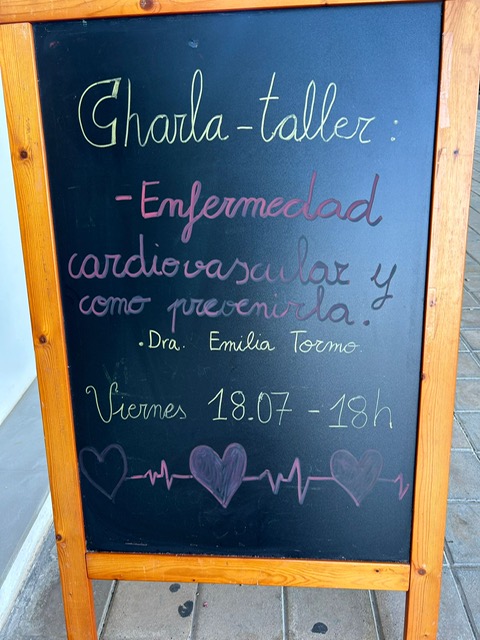 Charla-taller:
-Enfermedad
cardiovascular y
como prevenirla.
·Dra. Emilia Tormo.
Viernes 18.07 - 18h